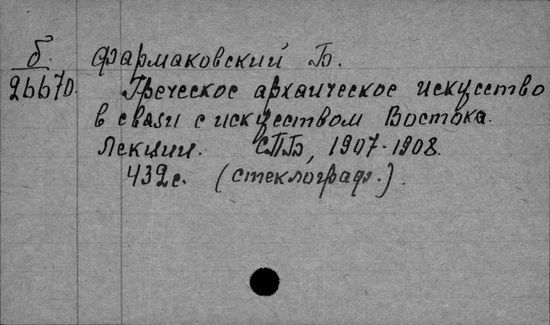 б. Фармаковский Б.
26670. Греческое архаическое искусство
в связи с искусством Востока.
Лекции. СПБ, 1907-1908.
432с. (стеклограф.).